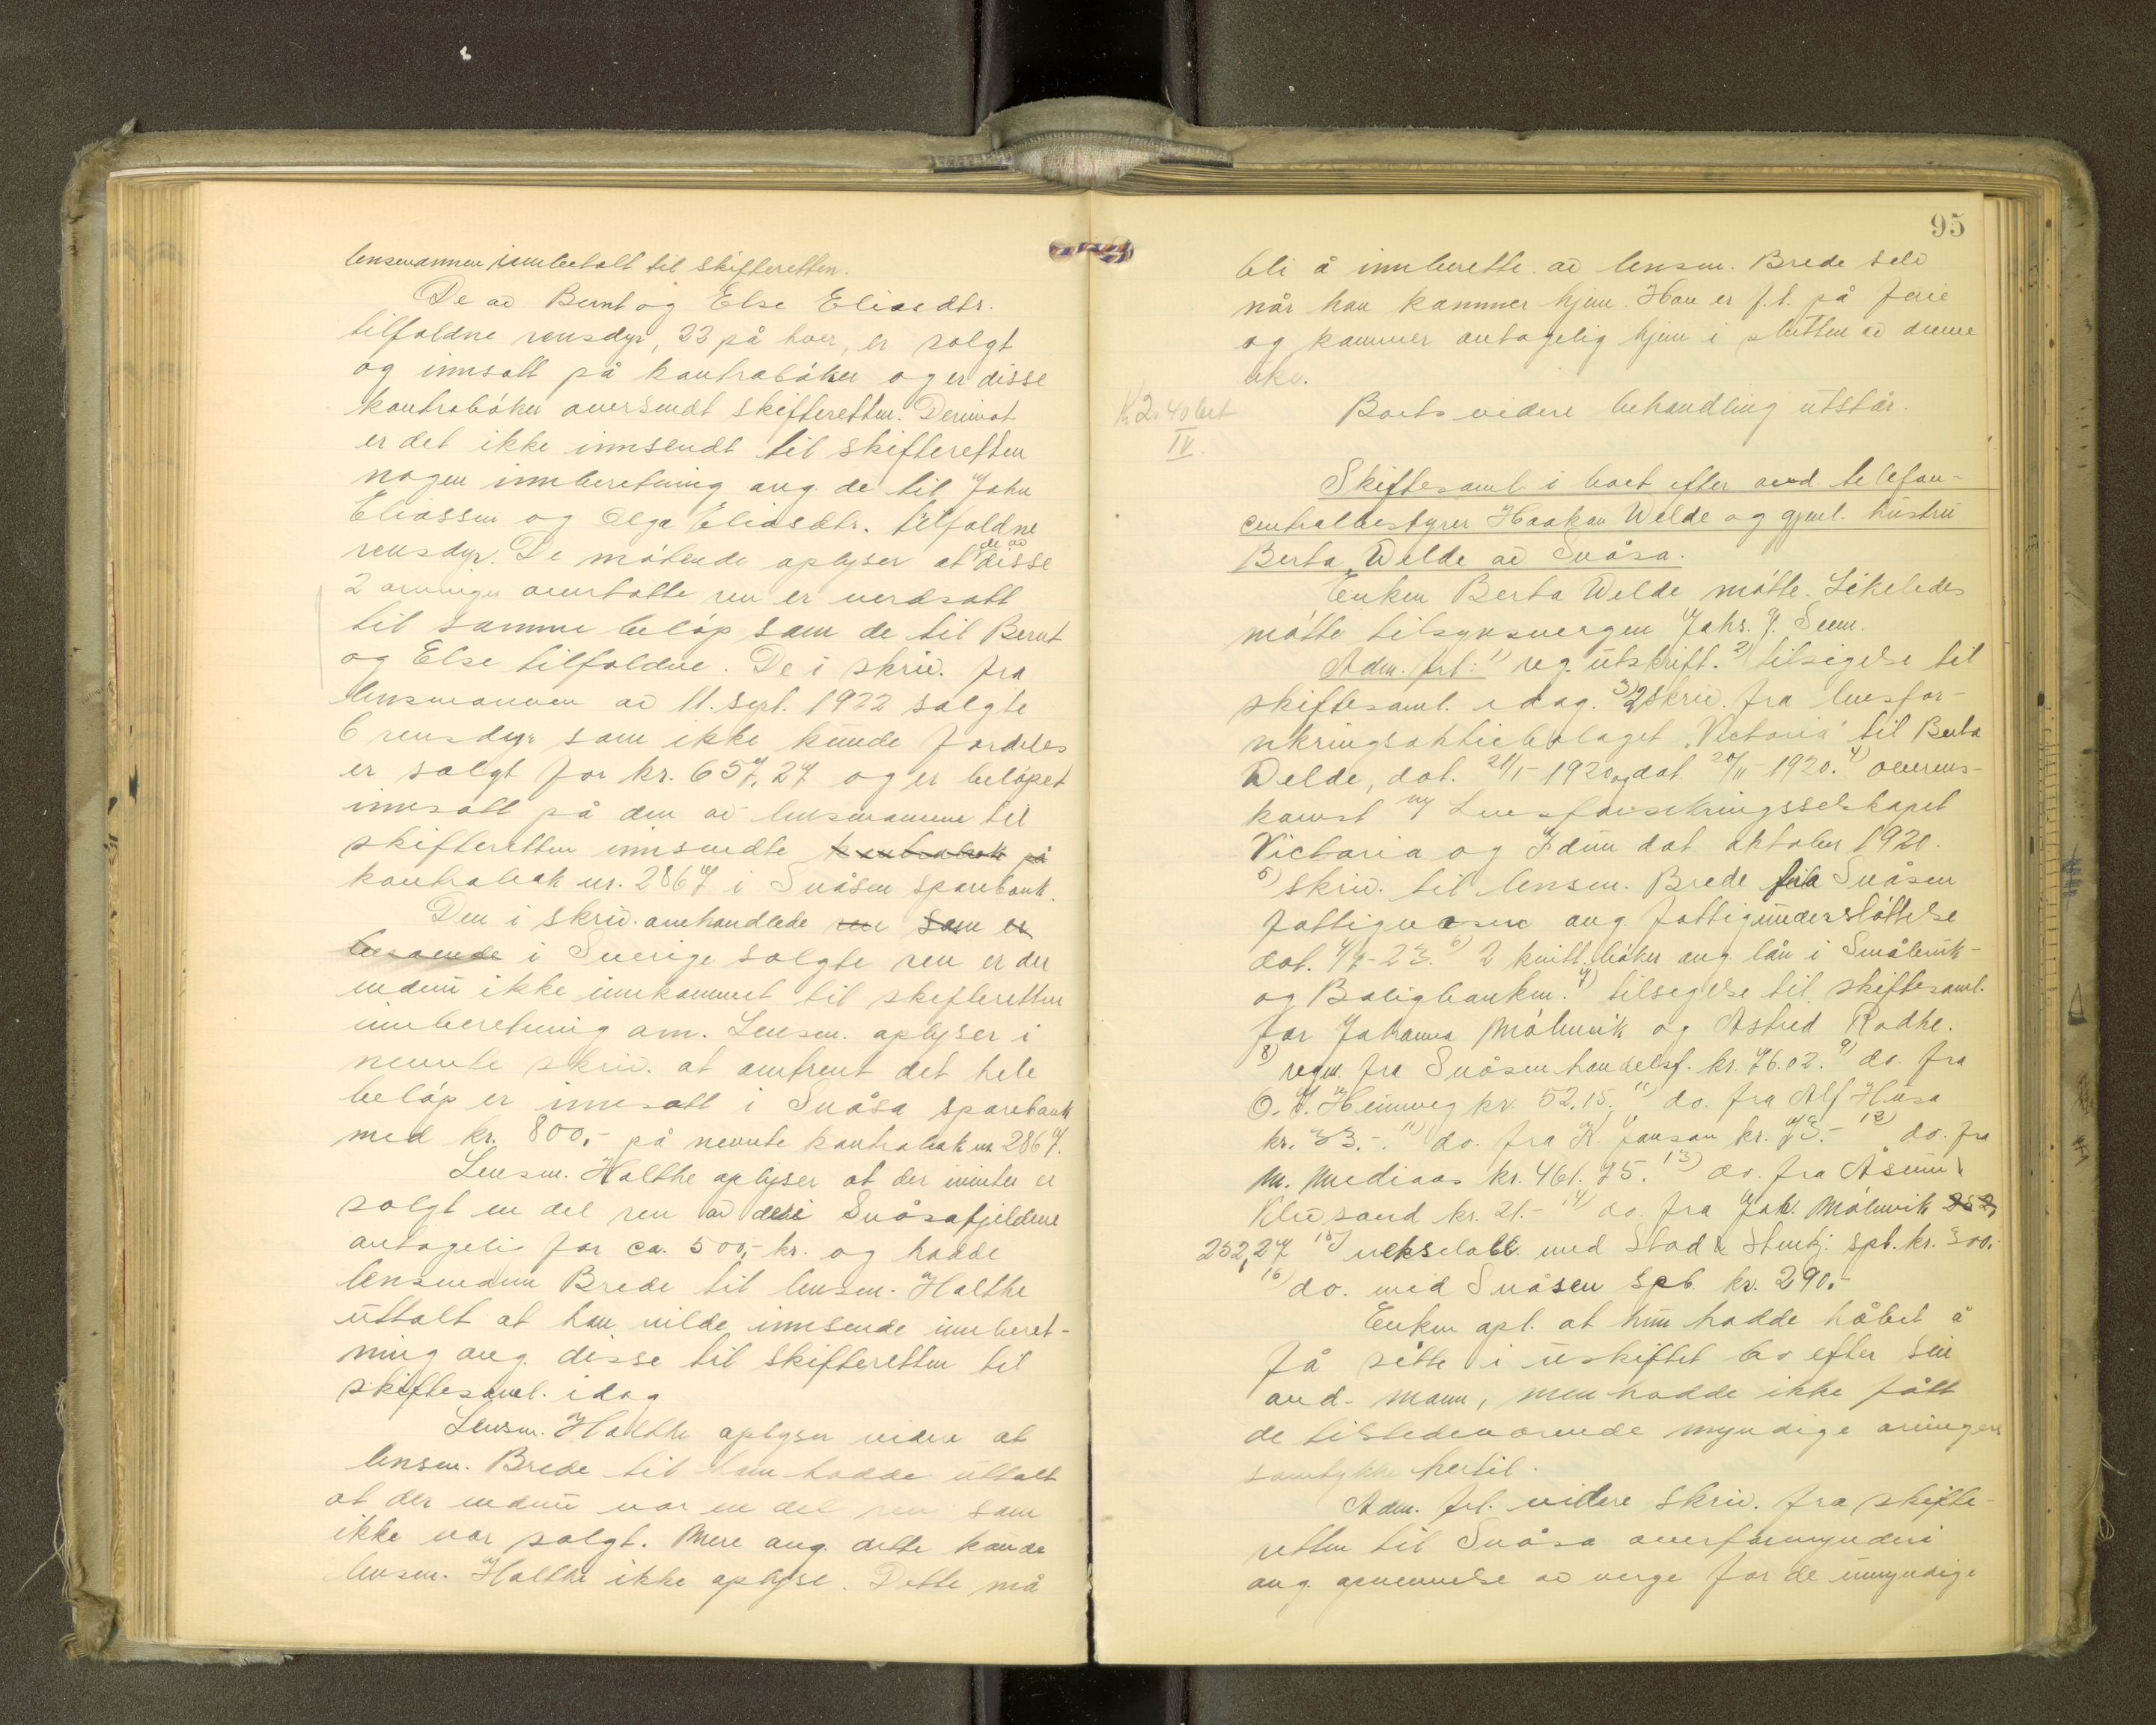 lensmannen innbetalt til skifteretten.
De av Bernt og Else Eliasdtr.
tilfaldne rensdyr, 23 på hver, er solgt
og innsatt på kontrabøker og er disse
kontrabøker oversendt skifteretten. Derimot
er det ikke innsendt til skifteretten
nogen innberetning ang. de til John
Eliassen og Olga Eliasdtr. tilfaldne
rensdyr. De møtende oplyser at de av disse
2 arvinger overtatte ren er verdsatt
til samme beløp som de til Bernt
og Else tilfaldne. De i skriv. fra
lensmannen av 11. sept. 1922 solgte
6 rensdyr som ikke kunde fordeles
er solgt for kr. 657,27 og er beløpet
innsatt på den av lensmannen til
skifteretten innsendte kontrabok på
kontrabok nr. 2867 i Snåsen sparebank.
Den i skriv. omhandlede ren som er
i Sverige solgte ren er der
endnu ikke innkommet til skifteretten
innberetning om. Lensm. oplyser i
nevnte skriv. at omtrent det hele
beløp er innsatt i Snåsa sparebank
med kr. 800,- på nevnte kontrabok nr. 2867.
Lensm. Holthe oplyser at der ivinter er
solgt en del ren av de i Snåsafjeldene
antagelig for ca. 500,- kr. og hadde
lensmann Brede til lensm. Holthe
uttalt at han vilde innsende innberet-
ning ang. disse til skifteretten til
skiftesaml. idag
Lensm. Holthe oplyser videre at
lensm. Brede til ham hadde uttalt
at der endnu var en del ren som
ikke var solgt. Mere ang. dette kunde
lensm. Holthe ikke oplyse. Dette må
95
bli å innberette av lensm. Brede selv
når han kommer hjem. Han er f.t. på ferie
og kommer antagelig hjem i slutten av denne
uke.
Boets videre behandling utstår.
K 2.40 bet
IV.
Skiftesaml. i boet efter avd telefon-
centralbestyrer Haakon Welde og gjenl. hustru
Berta Welde av Snåsa.
Enken Berta Welde møtte. Likeledes
møtte tilsynsvergen Johs. J. Seem.
Adm. frl: 1) reg. utskrift. 2) tilsigelse til
skiftesaml. idag. 3) 2 skriv. fra livsfor-
sikringsaktiebolaget "Victoria" til Berta
Welde, dat. 21/1-1920 og dat. 20/11-1920. 4) overens-
komst m/ Livsforsikringsselskapet
Victoria og Idun dat oktober 1920.
5) skriv. til lensm. Brede fra Snåsen
fattigvesen ang. fattigunderstøttelse
dat. 4/7-23. 6) 2 kvitt. bøker ang. lån i Småbruk-
og Boligbanken. 7) tilsigelse til skiftesaml.
for Johanna Mølnvik og Astrid Rodhe.
8) regn. fra Snåsen handelsf. kr. 76.02. 9) do. fra
O. J. Heimveg kr. 52.15. 10) do. fra Alf Husa
kr. 33.-. 11) do. fra K. Janson kr. 73.- 12) do. fra
M. Mediaas kr. 461.75. 13) do. fra Åsmund
Klevsand kr. 21.- 14) do. fra Joh. Mølnvik 252,
252,27 15) vekselobl. med Stod & Stenkj. spb. kr. 300,-
16) do. med Snåsen spb. kr. 290.-
Enken opl. at hun hadde håbet å
få sitte i uskiftet bo efter sin
avd. mann, men hadde ikke fått
de tilstedeværende myndige arvingers
samtykke hertil.
Adm. frl. videre skriv. fra skifte-
retten til Snåsa overformynderi
ang. opnevnelse av verge for de umyndige